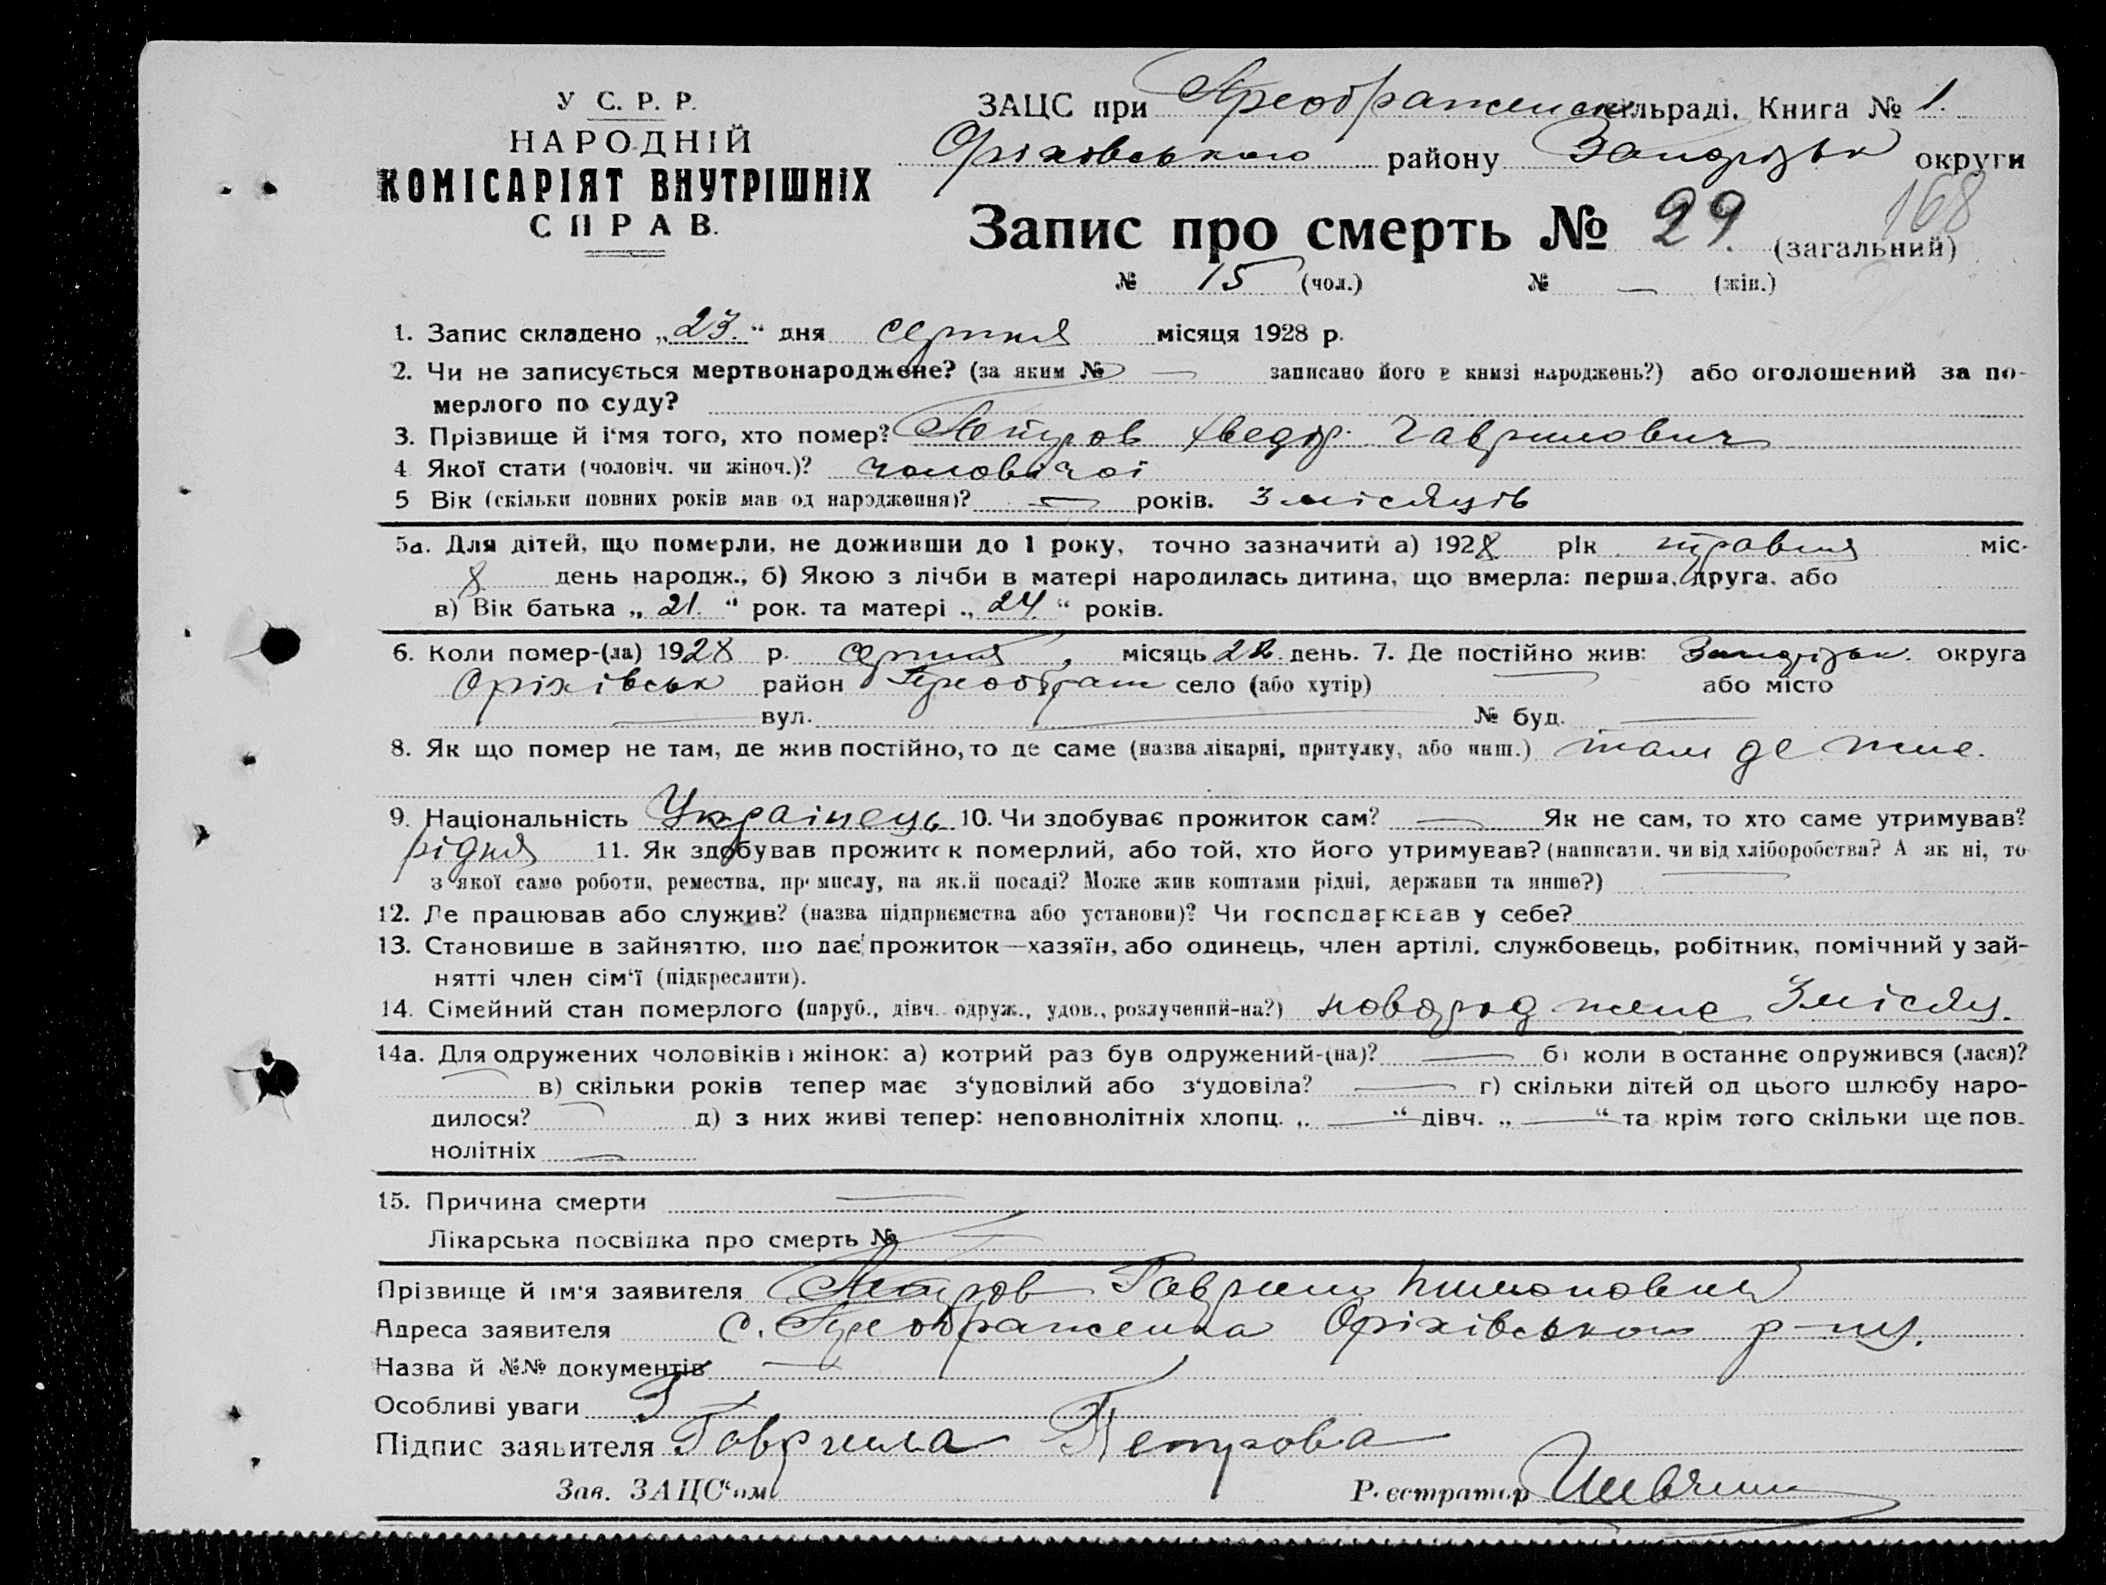 У С. Р. Р.
НАРОДНІЙ
КОМІСАРІЯТ ВНУТРІШНІХ
СПРАВ.
ЗАЦС при Преображенськ сільраді. Книга № 1.
Оріхівського району Запорізьк округи
168
Запис про смерть № 29. (загальний)
№ 15 (чол.) № — (жін.)
1. Запис складено „23.“ дня серпня місяця 1928 р.
2. Чи не записується мертвонароджене? (за яким № — записано його в книзі народжень?) або оголошений за по-
мерлого по суду?
3. Прізвище й і'мя того, хто помер? Петров Хведір Гаврилович
4 Якої стати (чоловіч. чи жіноч.)? чоловічої
5 Вік (скільки повних років мав од народження)? — років. 3 місяців
5а. Для дітей, що померли, не доживши до 1 року, точно зазначити а) 1928 рік травня міс.
8 день народж., б) Якою з лічби в матері народилась дитина, що вмерла: перша, друга, або
в) Вік батька „21.“ рок. та матері „24.“ років.
6. Коли помер-(ла) 1928 р. серпня місяць 22 день. 7. Де постійно жив: Запорізьк. округа
Оріхівськ район Преображ село (або хутір) — або місто
— вул. — № буд. —
8. Як що помер не там, де жив постійно, то де саме (назва лікарні, притулку, або инш.) там де жив.
9. Національність Українець 10. Чи здобуває прожиток сам? — Як не сам, то хто саме утримував?
рідня 11. Як здобував прожиток померлий, або той, хто його утримував? (написати, чи від хліборобства? А як ні, то
з якої само роботи, ремества, промислу, на якій посаді? Може жив коштами рідні, держави та инше?) —
12. Де працював або служив? (назва підприємства або установи)? Чи господарював у себе?
13. Становише в зайняттю, що дає прожиток—хазяїн, або одинець, член артілі, службовець, робітник, помічний у зай-
нятті член сім'ї (підкреслити).
14. Сімейний стан померлого (паруб., дівч. одруж., удов., розлучений-на?) новороджене 3 місяц.
14а. Для одружених чоловіків і жінок: а) котрий раз був одружений-(на)? — б) коли в останнє одружився (лася)?
— в) скільки років тепер має з'удовілий або з'удовіла? — г) скільки дітей од цього шлюбу наро-
дилося? — д) з них живі тепер: неповнолітніх хлопц. „—“ дівч. „—“ та крім того скільки ще пов.
нолітніх —
15. Причина смерти —
Лікарська посвідка про смерть № —
Прізвище й ім'я заявителя Петров Гаврило Пимонович
Адреса заявителя с. Преображенка Оріхівського р-ну.
Назва й №№ документів —
Особливі уваги
Підпис заявителя Гаврила Петрова
Зав. ЗАЦС'ом Реєстратор